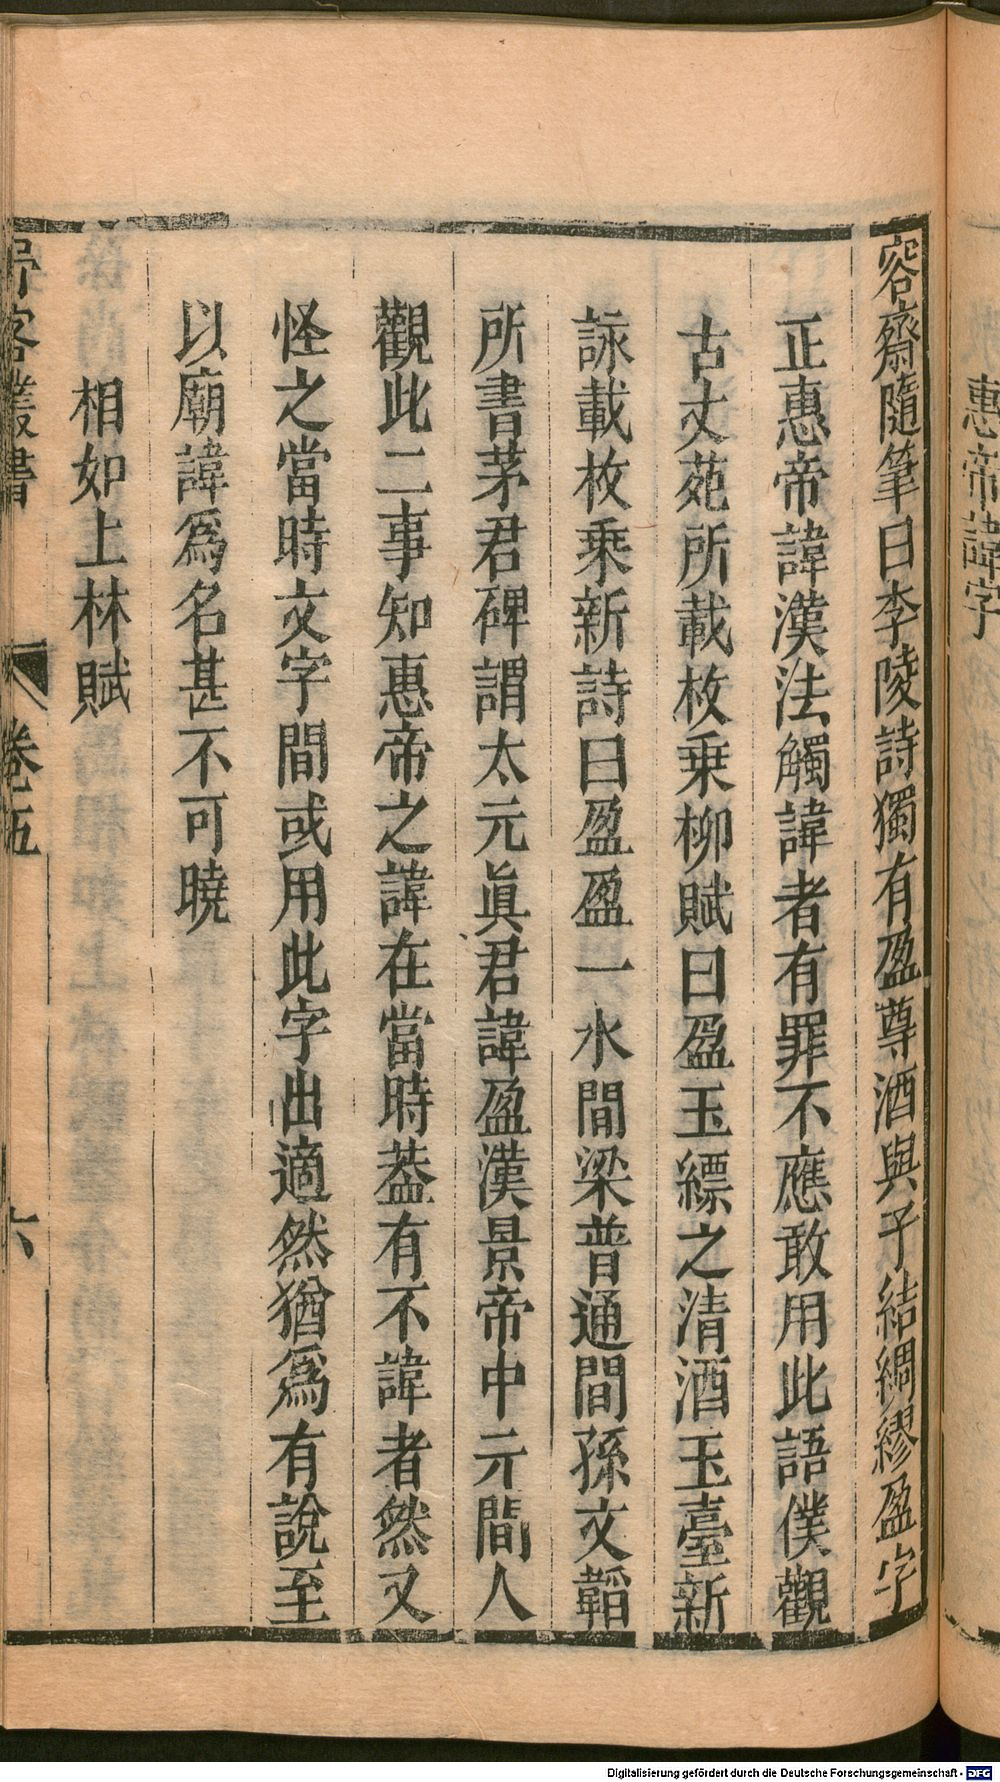 惠帝諱字
容齋隨筆曰李陵詩獨有盈尊酒與子結綢繆盈字
正惠帝諱漢法觸諱者有罪不應敢用此語僕觀
古文苑所載枚乗柳賦曰盈玉縹之清酒玉臺新
詠載枚乗新詩曰盈盈一水間梁普通間孫文韜
所書茅君碑謂太元眞君諱盈漢景帝中元間人
觀此二事知惠帝之諱在當時葢有不諱者然又
怪之當時文字間或用此字出適然猶爲有說至
以廟諱爲名甚不可曉
相如上林賦
野客叢書
卷五
六
Digitalisierung gefördert durch die Deutsche Forschungsgemeinschaft - DFG